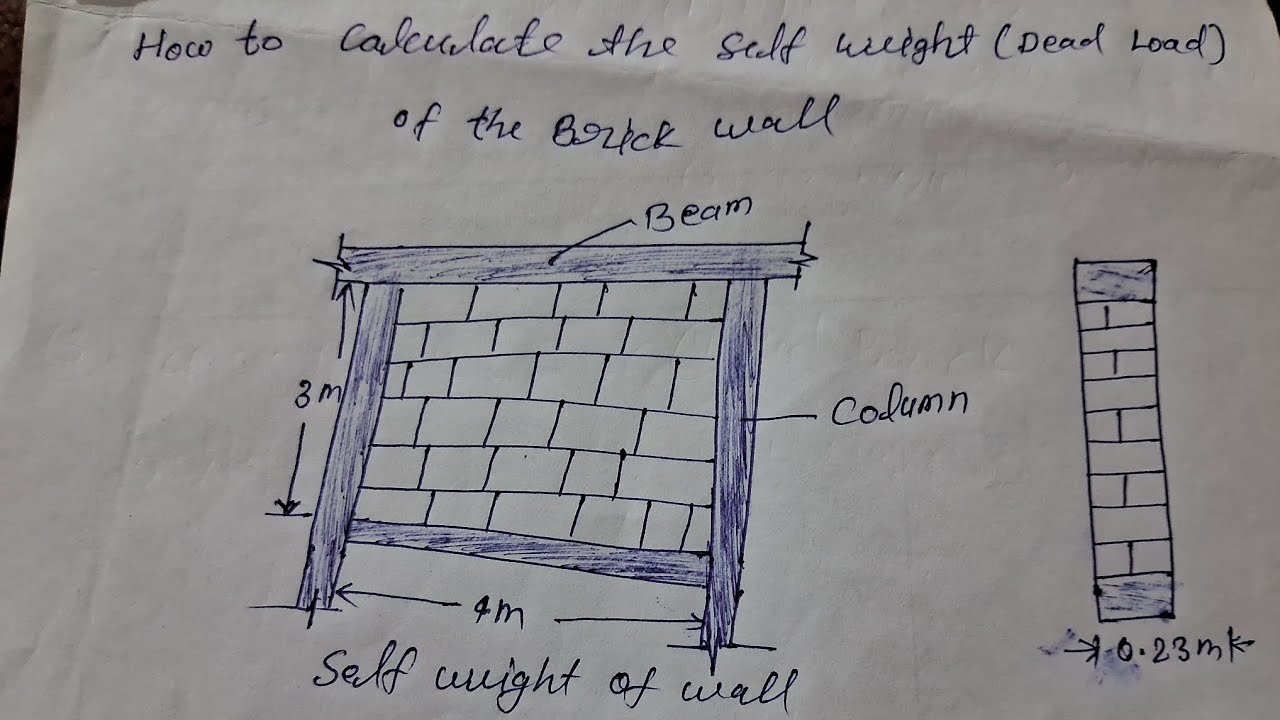 How to Calculate the Self weight (Dead Load)
of the Brick wall
Beam
3m
Column
4m
0.23m
Self weight of wall